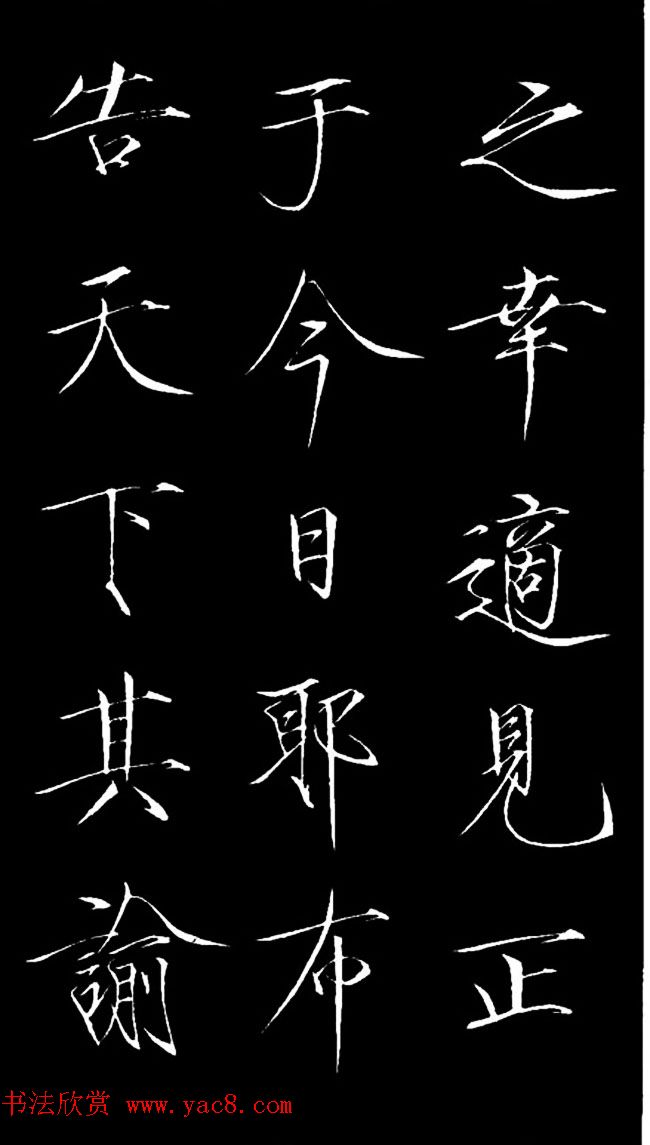 之幸適見正
于今日耶布
告天下其諭
书法欣赏 www.yac8.com